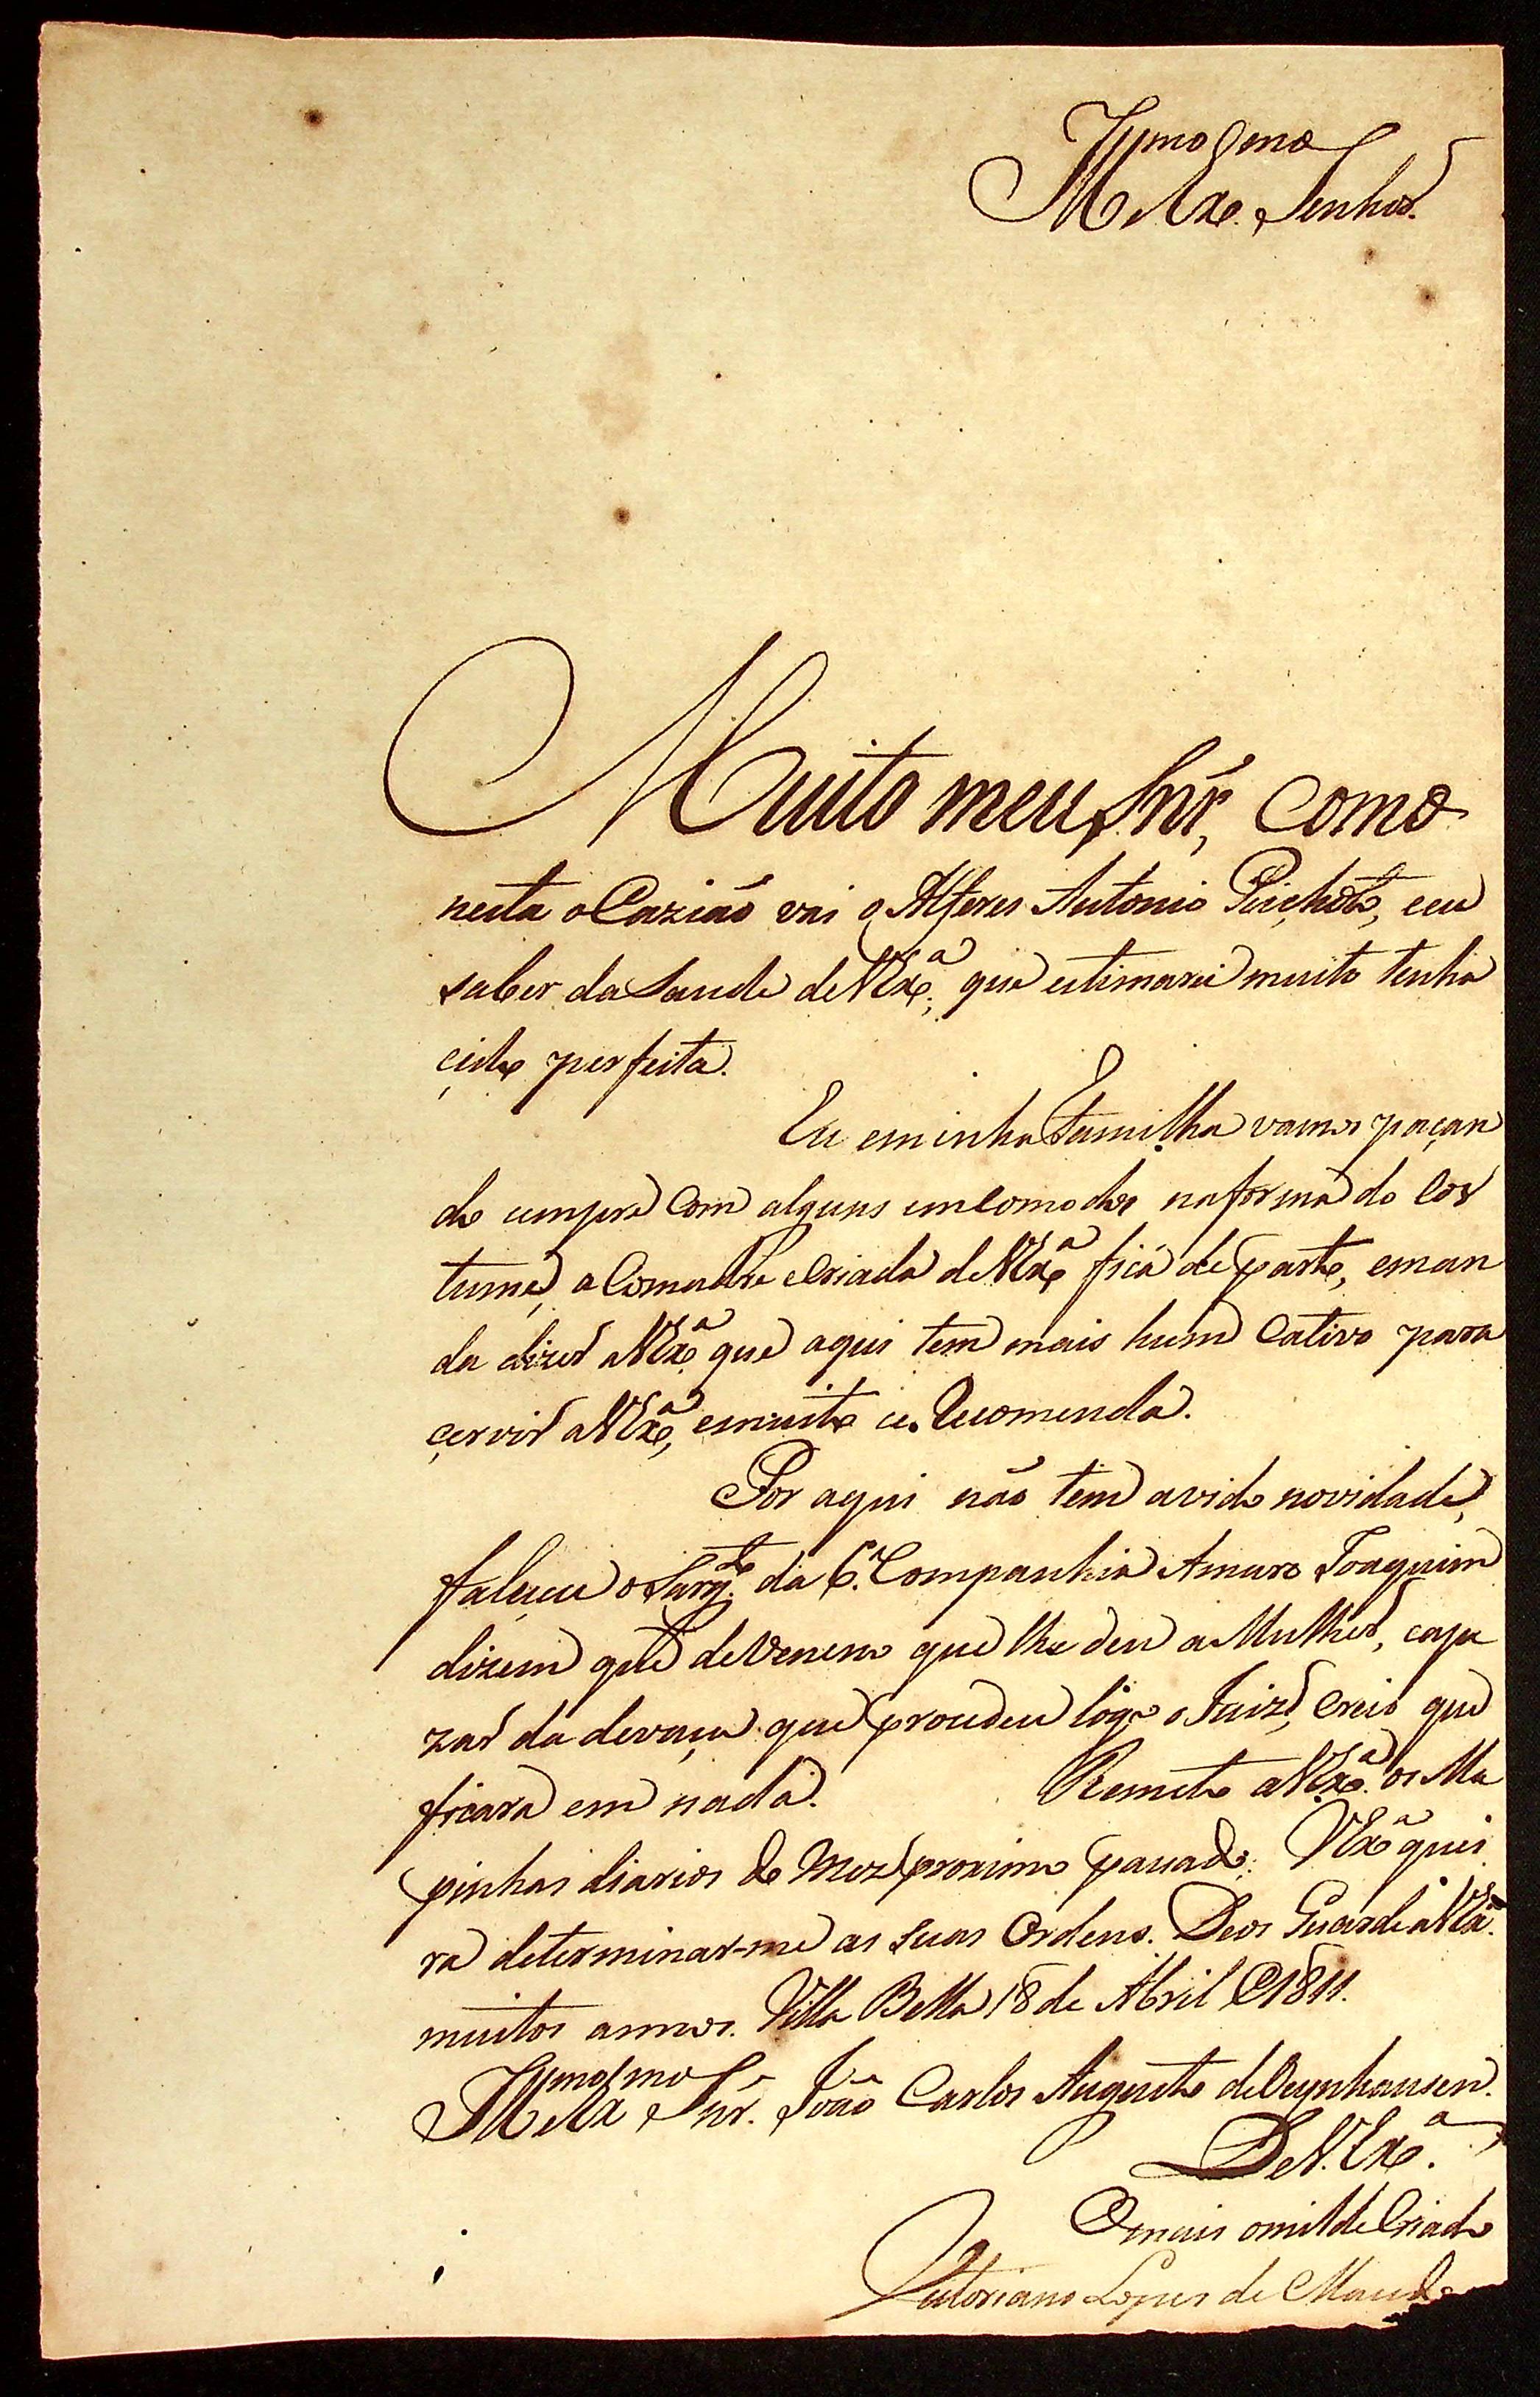 Illmo. Exmo. Senhor.
Muito meu Snr., como
nesta ocazião vai o Alferes Antonio Peichoto, ceu
saber da Saude de VExa., que estimarei muito tenha
cido perfeita.
Eu eminha Familha vamos paçan
do cempre com alguns emcomodos naforma do cos
tume, a Comadre eCriada deVExa fica de parto, eman
da dizer aVExa. que aqui tem mais hum Cativo para
çervir aVExa, emuito ce Recomenda.
Por aqui não tem avido novidade,
faleceu o Sargto. da 6.a Companhia Amaro Joaquim
dizem que deVeneno que lhe deu aMulher, eape
zar da devaça que procedeu logo oJuiz, Creio que
ficara em nada. Remeto aVExa. os Ma
pinhas diarios do Mez proximo paçado. VExa quei
ra determinar-me as suas Ordens. Deos Guarde aVExa.
muitos annos. Villa Bella 18 de Abril de 1811.
Illmo. Exmo. Snr. João Carlos Augusto deOeynhausen.
DeV.Exa.
O mais omilde Criado
Victoriano Lopes de Macedo